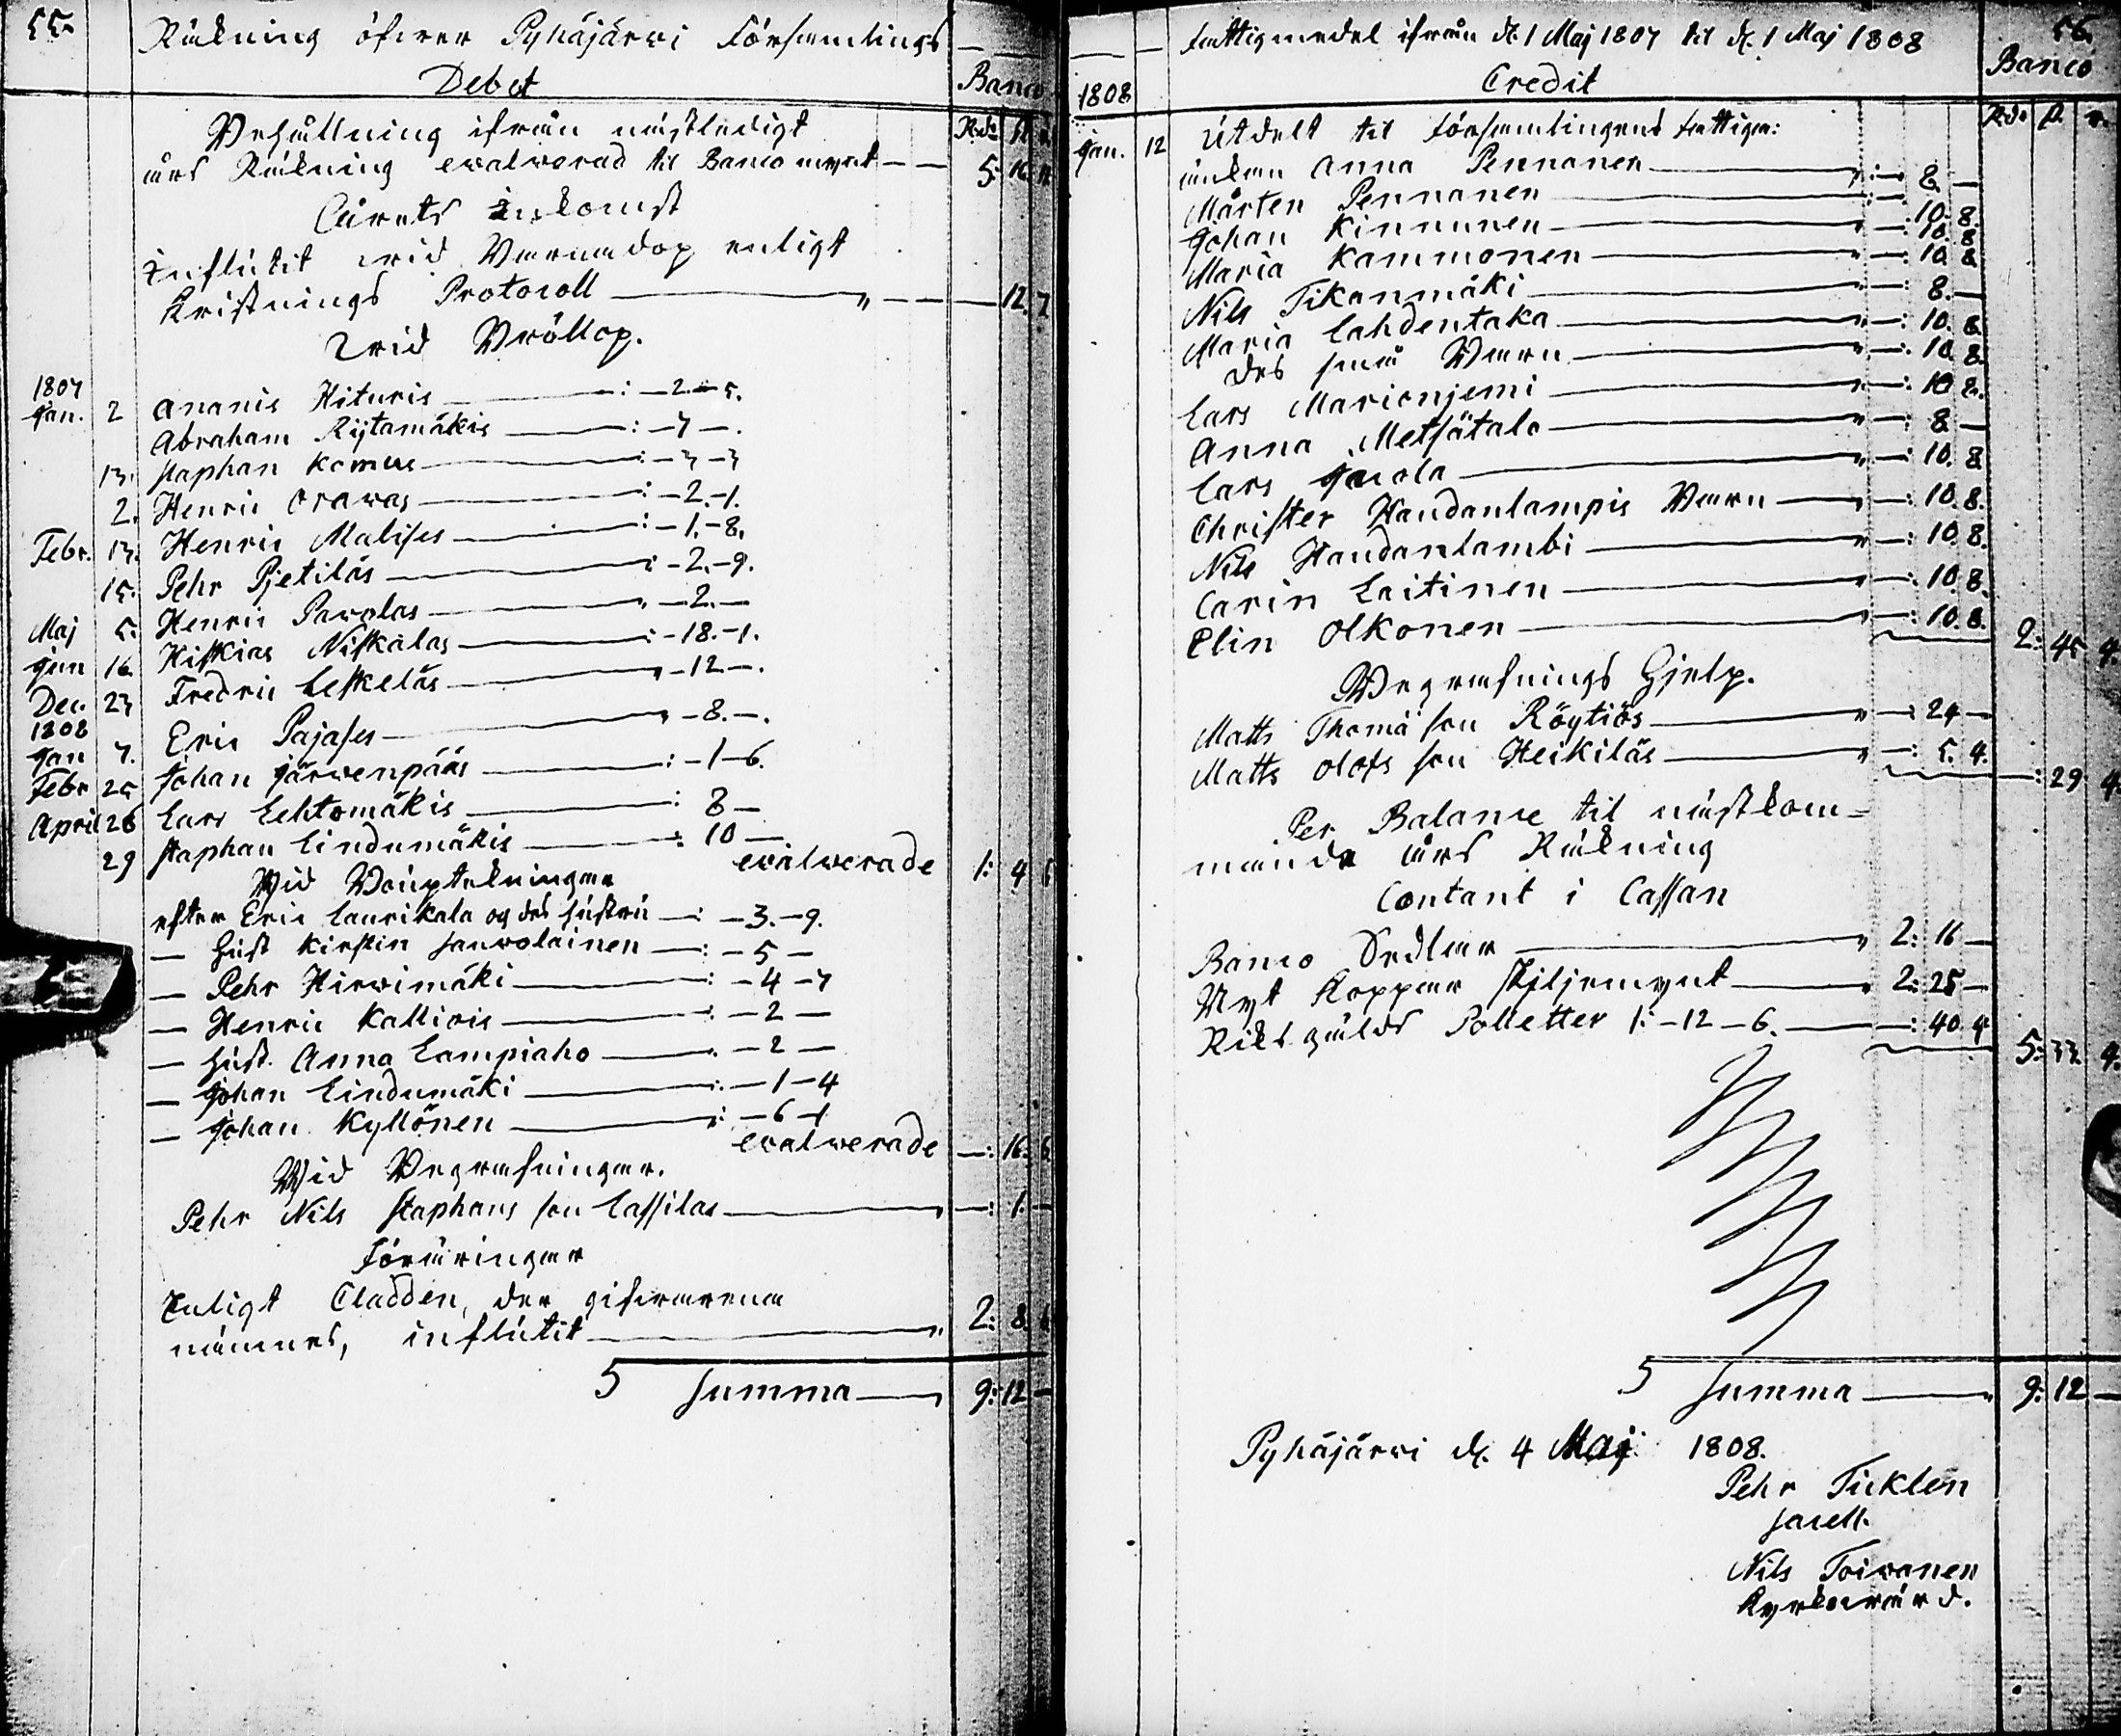 55.
Räkning öfwer Pyhäjärwi Församlings
Debet
Banco
Rdr ß. r.
Behållning ifrån nästledigt
års Räkning evalverad til Banco mynt — — 5: 16.
Årets Inkomst
Influtit wid Barnadop enligt
Kristnings Protocoll — " — — 12. 7
Wid Bröllop.
1807
Jan. 2 Ananis Hituris — : — 2. — 5.
Abraham Rytamäkis — : — 7 — .
13. Staphan Komus — : — 3 — 3
2. Henric Orawas — : — 2. — 1.
Febr. 13. Henric Malises — : — 1. — 8.
15. Pehr Pjetiläs — : — 2. — 9.
Henric Pawolas — " — 2. —
Maj 5. Hiskias Niskalas — : — 18. — 1.
Jun 16. Fredric Leskeläs — " — 12. — .
Dec. 23
1808 Eric Pajases — " — 8. — .
Jan 7. Johan Järwenpääs — : — 1 — 6.
Febr 25 Lars Lehtomäkis — : 8 —
April 26 Staphan Lindumäkis — : 10 —
29 evalverade 1: 4
Wid Bouptekningar
efter Eric Laurikala og des hustru — : — 3. — 9.
— Hust Kirstin Sauwolainen — : — 5 —
— Pehr Hirwimäki — : — 4 — 7
— Henric Kalliois — : — 2 —
— Hust. Anna Lampiaho — : — 2 —
— Johan Lindumäki — : — 1 — 4
— Johan Kyllönen — : — 6 — 1
evalverade — : 16. 6
Wid Begrafningar.
Pehr Nils Staphans son Lassilas — " — : 1. —
Föräringar
Enligt Cladden, der gifwarena
nämnes, influtit — " 2: 8.
Summa — " 9: 12 —
56.
fattigmedel ifrån d. 1 Maj 1807 til d. 1 Maj 1808
Credit
Banco
1808
Rdr ß. r.
Jan. 12 Utdelt til Församlingens fattiga:
änkan Anna Pennanen — " : — 8. —
Mårten Pennanen — : — 10. 8.
Johan Kinnunen — " — : 10. 8
Maria Kammonen — " — : 10. 8
Nils Tikanmäki — " — : 8. —
Maria Lahdentaka — " — : 10. 8.
des små Barn — " — : 10. 8.
Lars Marionjemi — " — : 10 8.
Anna Metsätalo — " — : 8 —
Lars Jacola — " — : 10. 8
Christer Haudanlampis Barn — " — : 10. 8.
Nils Haudanlambi — " — : 10. 8.
Carin Laitinen — " — : 10. 8.
Elin Olkonen — " — : 10. 8.
2: 45 4.
Begrafnings Hjelp.
Matts Thomä son Röytiös — " — : 24 —
Matts Olofs son Heikiläs — " — : 5. 4.
— : 29. 4.
Per Balance til nästkom-
mande års Räkning
Contant i Cassan
Banco Sedlar — " 2: 16 —
Nyt Koppar Skiljemynt — " 2: 25 —
Riksgälds Polletter 1: — 12 — 6. — — : 40. 4
5: 33. 4.
Summa — " 9: 12 —
Pyhäjärwi d. 4 Maj 1808.
Pehr Ticklen
Sacell.
Nils Toiwanen
Kyrkowärd.